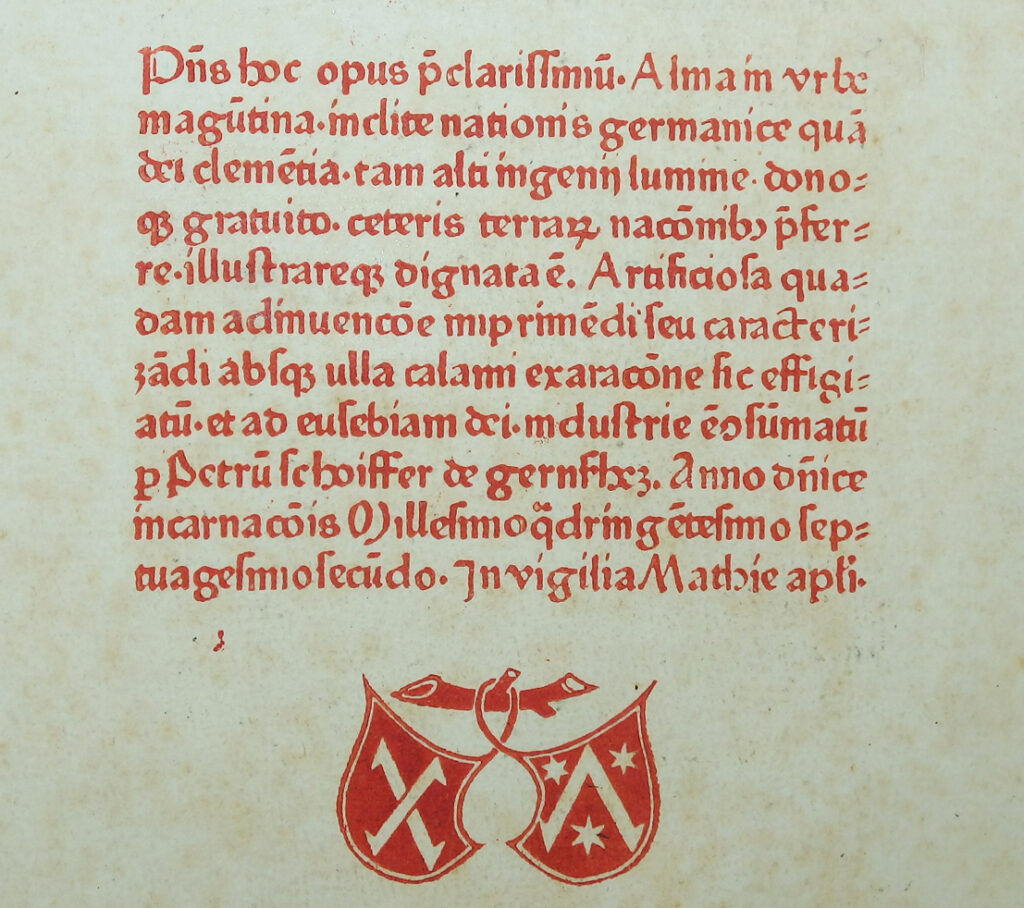 Pn̄s hoc opus p̄clarissimū. Alma in vrbe
magūtina. inclite nationis germanice quā
dei clemētia. tam alti ingenij lumine. dono⸗
qꝫ gratuito. ceteris terraꝝ nacōnibꝰ p̄fer⸗
re. illustrareqꝫ dignata ē. Artificiosa qua⸗
dam adinuencōe imprimēdi seu caracteri⸗
zādi absqꝫ ulla calami exaracōne sic effigi⸗
atū. et ad eusebiam dei. industrie ē ꝯsūmatū
ꝑ Petrū schoiffer de gernsheꝫ. Anno dn̄ice
incarnacōis Millesimo qͣdringētesimo sep⸗
tuagesimosecūdo. In vigilia Mathie apl̄i.